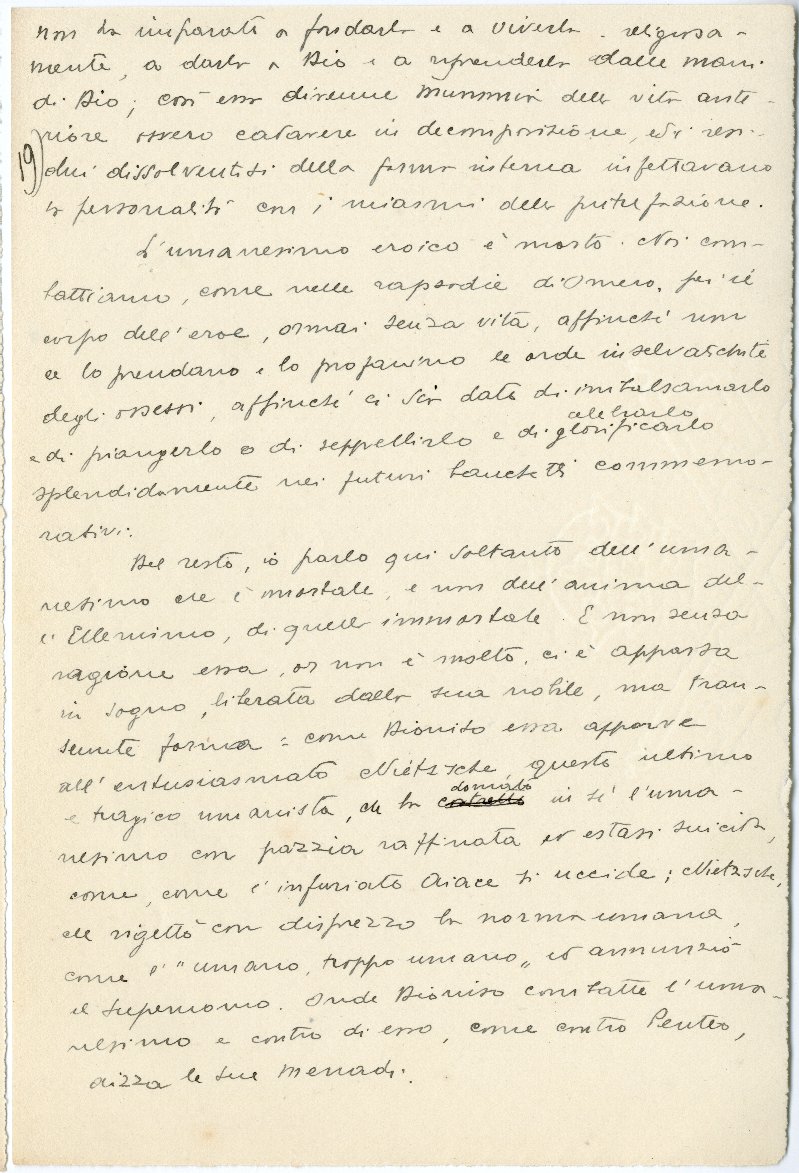 non ha imparato a fondarla e a viverla religiosa-
mente, a darla a Dio e a riprenderla dalle mani
di Dio; così essa divenne mummia della vita ante-
riore ossero cadavere in decomposizione, ed i resi-
19) dui dissolventisi della forma interna infettavano
la personalità con i miasmi della putrefazione.
L'umanesimo eroico è morto. Noi com-
battiamo, come nelle rapsodie di Omero, per il
corpo dell'eroe, ormai senza vita, affinché non
ce lo prendano e lo profanino le orde inselvatichite
degli ossessi, affinché ci sia dato di imbalsamarlo
celebrarlo
e di piangerlo e di seppellirlo e di glorificarlo
splendidamente nei futuri banchetti commemo-
rativi.
Del resto, io parlo qui soltanto dell'uma-
nesimo che è mortale, e non dell'anima del-
l'Ellenismo, di quella immortale. E non senza
ragione essa, or non è molto, ci è apparsa
in sogno, liberata dalla sua nobile, ma tran-
seunte forma: come Dioniso essa apparve
all'entusiasmato Nietzsche, questo ultimo
domato
e tragico umanista, che ha in sé l'uma-
nesimo con pazzia raffinata ed estasi suicida,
come, come l'infuriato Aiace si uccide; Nietzsche,
che rigettò con disprezzo la norma umana,
come l'"umano, troppo umano„ ed annunziò
il superuomo. Onde Dioniso combatte l'uma-
nesimo e contro di esso, come contro Penteo,
aizza le sue Menadi.